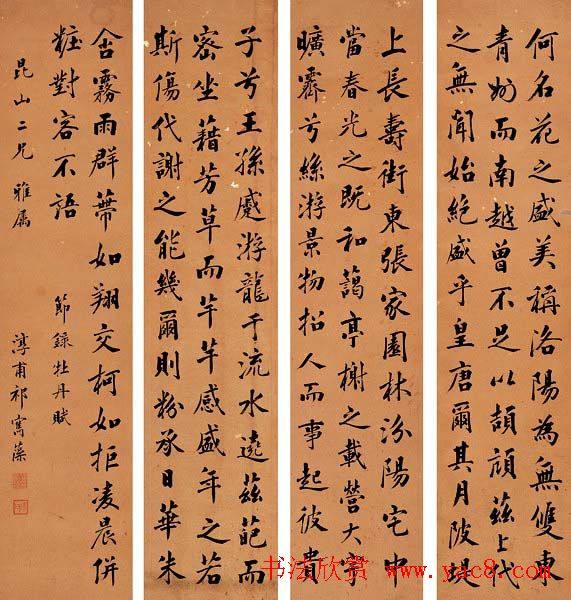 何名花之盛美稱洛陽為無雙東
青州而南越曾不足以頡頏茲上代
之無聞始絕盛乎皇唐爾其月陂堤
上長壽街東張家園林汾陽宅中
當春光之既和藹亭榭之載營大宇
曠霽兮絲游景物招人而事起彼貴
子兮王孫蹙游龍于流水遶茲葩而
密坐藉芳草而芊芊感盛年之若
斯傷代謝之能幾爾則粉承日華朱
含霧雨群蕚如翔交柯如拒凌晨併
粧對容不語
節錄牡丹賦
昆山二兄 雅属
淳甫祁寯藻
书法欣赏 www.yac8.com